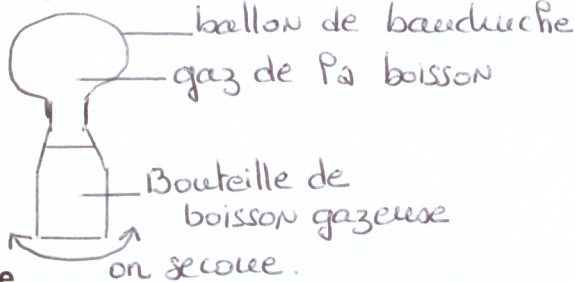 ballon de bauduche
gaz de la boisson
Bouteille de
boisson gazeuse
on secoue.
e